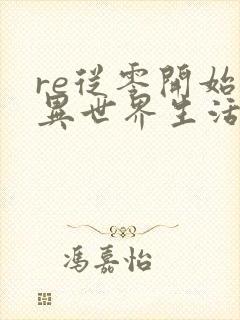 re從零開始
異世界生活
馮嘉怡